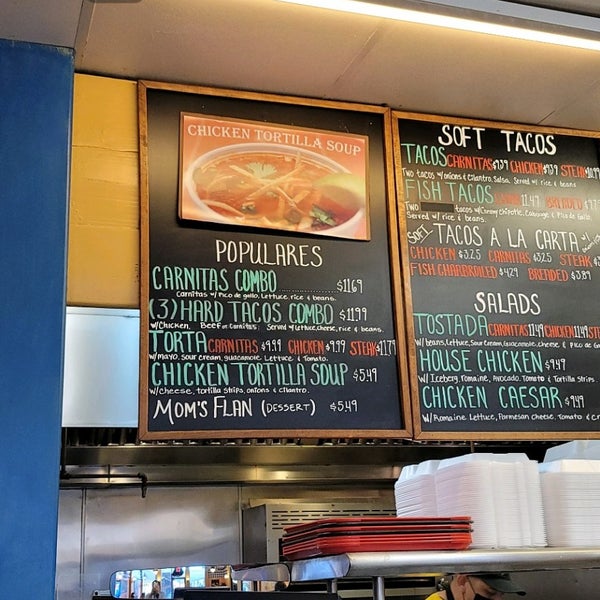 CHICKEN TORTILLA SOUP
POPULARES
CARNITAS COMBO............$11.69
Carnitas w/ Pico de gallo, Lettuce, rice & beans.
(3) HARD TACOS COMBO $11.99
w/Chicken, Beef or Carnitas. Served w/ Lettuce, cheese, rice & beans.
TORTA CARNITAS $9.99 CHICKEN $9.99 STEAK $11.79
w/mayo, sour cream, guacamole, Lettuce & Tomato.
CHICKEN TORTILLA SOUP $5.49
w/cheese, tortilla strips, onions & cilantro.
MOM'S FLAN (DESSERT) $5.49
SOFT TACOS
TACOS CARNITAS $9.39 CHICKEN $9.39 STEAK
Two tacos w/onions & cilantro, salsa, Served w/ rice & beans
FISH TACOS 11.47 BREADED
Two tacos w/Creamy chipotle, Cabbage & Pico de Gallo,
Served w/ rice & beans.
SOFT TACOS A LA CARTA w/
CHICKEN $3.25 CARNITAS $3.25 STEAK
FISH CHARBROILED $4.29 BREADED $3.89
SALADS
TOSTADA CARNITAS 11.49 CHICKEN 11.49
w/beans, Lettuce, Sour Cream, Guacamole, cheese & Pico de
HOUSE CHICKEN $9.49
w/ Iceberg, Romaine, Avocado, Tomato & Tortilla Strips
CHICKEN CAESAR $9.49
w/ Romaine Lettuce, Parmesan Cheese, Tomato &